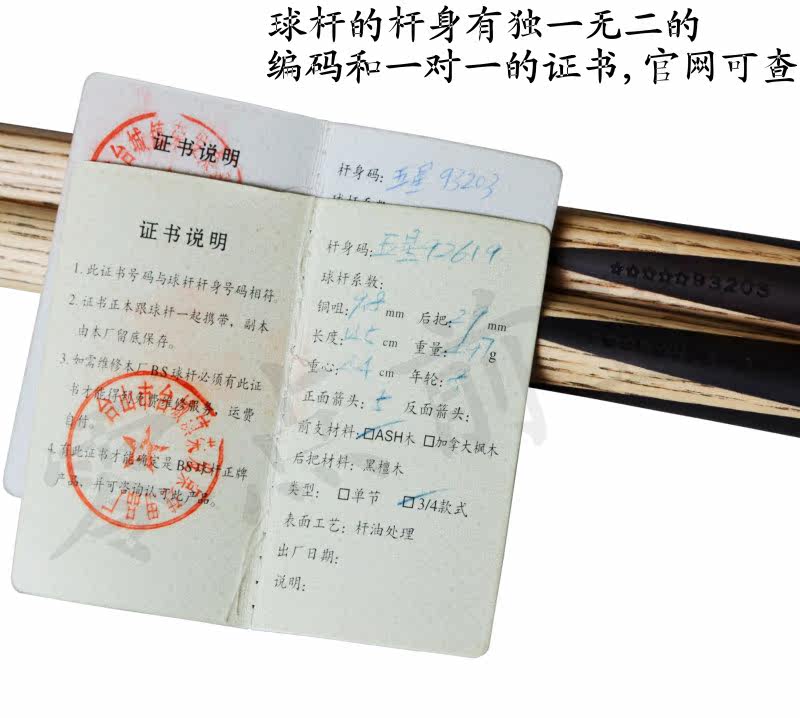 球杆的杆身有独一无二的
编码和一对一的证书,官网可查
证书说明
杆身码:五星93203
证书说明
1.此证书号码与球杆杆身号码相符.
2.证书正本跟球杆一起携带,副本
由本厂留底保存。
3.如需维修本厂BS球杆必须有此证
书才能得到免费维修服务,运费
自付。
4.有此证书才能确定是BS球杆正牌
产品,并可咨询认可此产品。
杆身码:五星92619
球杆系数:
铜咀:9.8 mm 后把:29 mm
长度:145 cm 重量: g
重心: cm 年轮:
正面箭头:5 反面箭头:
前支材料:☐ASH木 ☐加拿大枫木
后把材料:黑檀木
类型:☐单节 ☐3/4款式
表面工艺:杆油处理
出厂日期:
说明:
☆☆☆☆☆93203